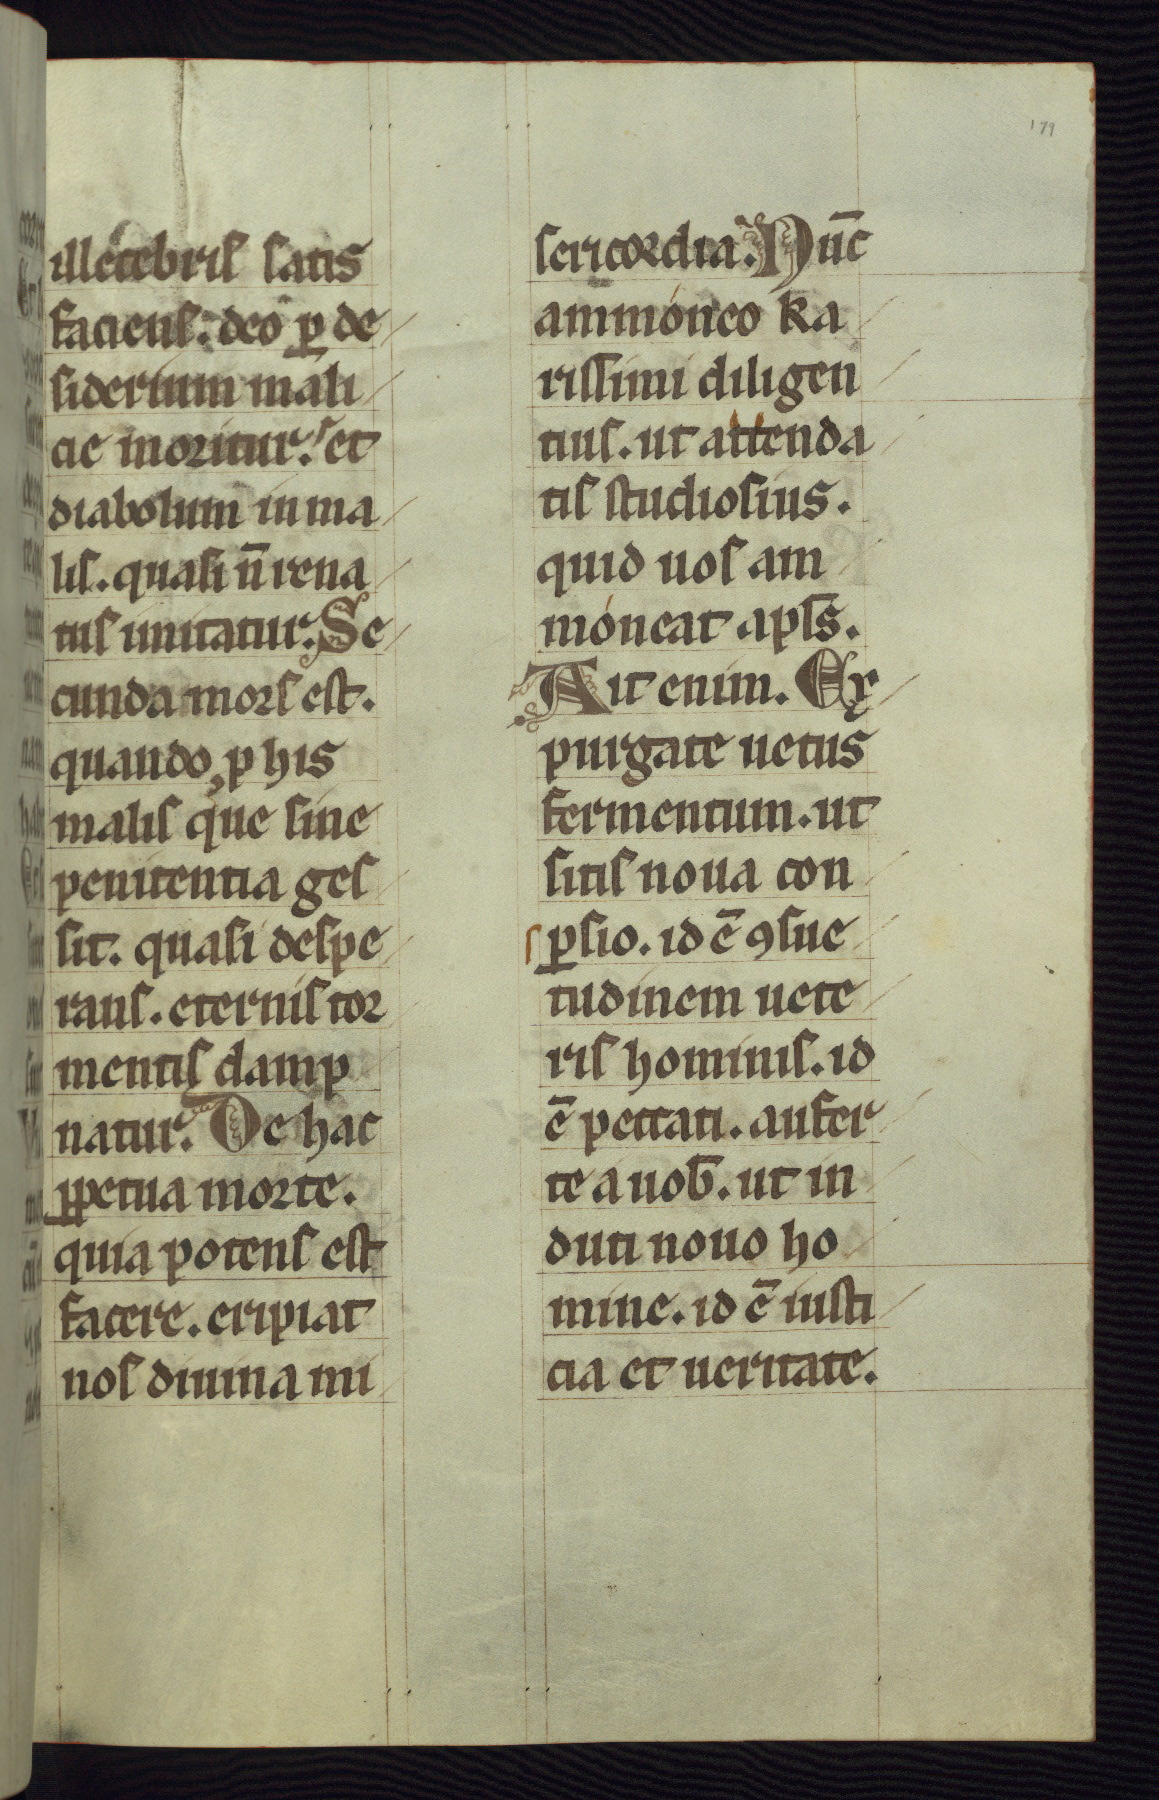 179
illecebris satis
faciens. deo ꝑ de
siderium mali
cie moritur. et
diabolum in ma
lis. quasi n̄ rena
tus imitatur. Se
cunda mors est.
quando, p his
malis que sine
penitentia ges
sit. quasi despe
rans. eternis tor
mentis damp
natur. De hac
ꝑpetua morte.
quia potens est
facere. eripiat
nos diuina mi
sericordia. Nūc
ammóneo ka
rissimi diligen
tius. ut attenda
tis studiosius.
quid uos am
móneat apl̄s.
Ait enim. Ex
purgate uetus
fermentum. ut
sitis noua con
ꝑsio. id ē ꝯsue
tudinem uete
ris hominis. id
ē peccati. aufer
te a uob̄. ut in
duti nouo ho
mine. id ē iusti
cia et ueritate.